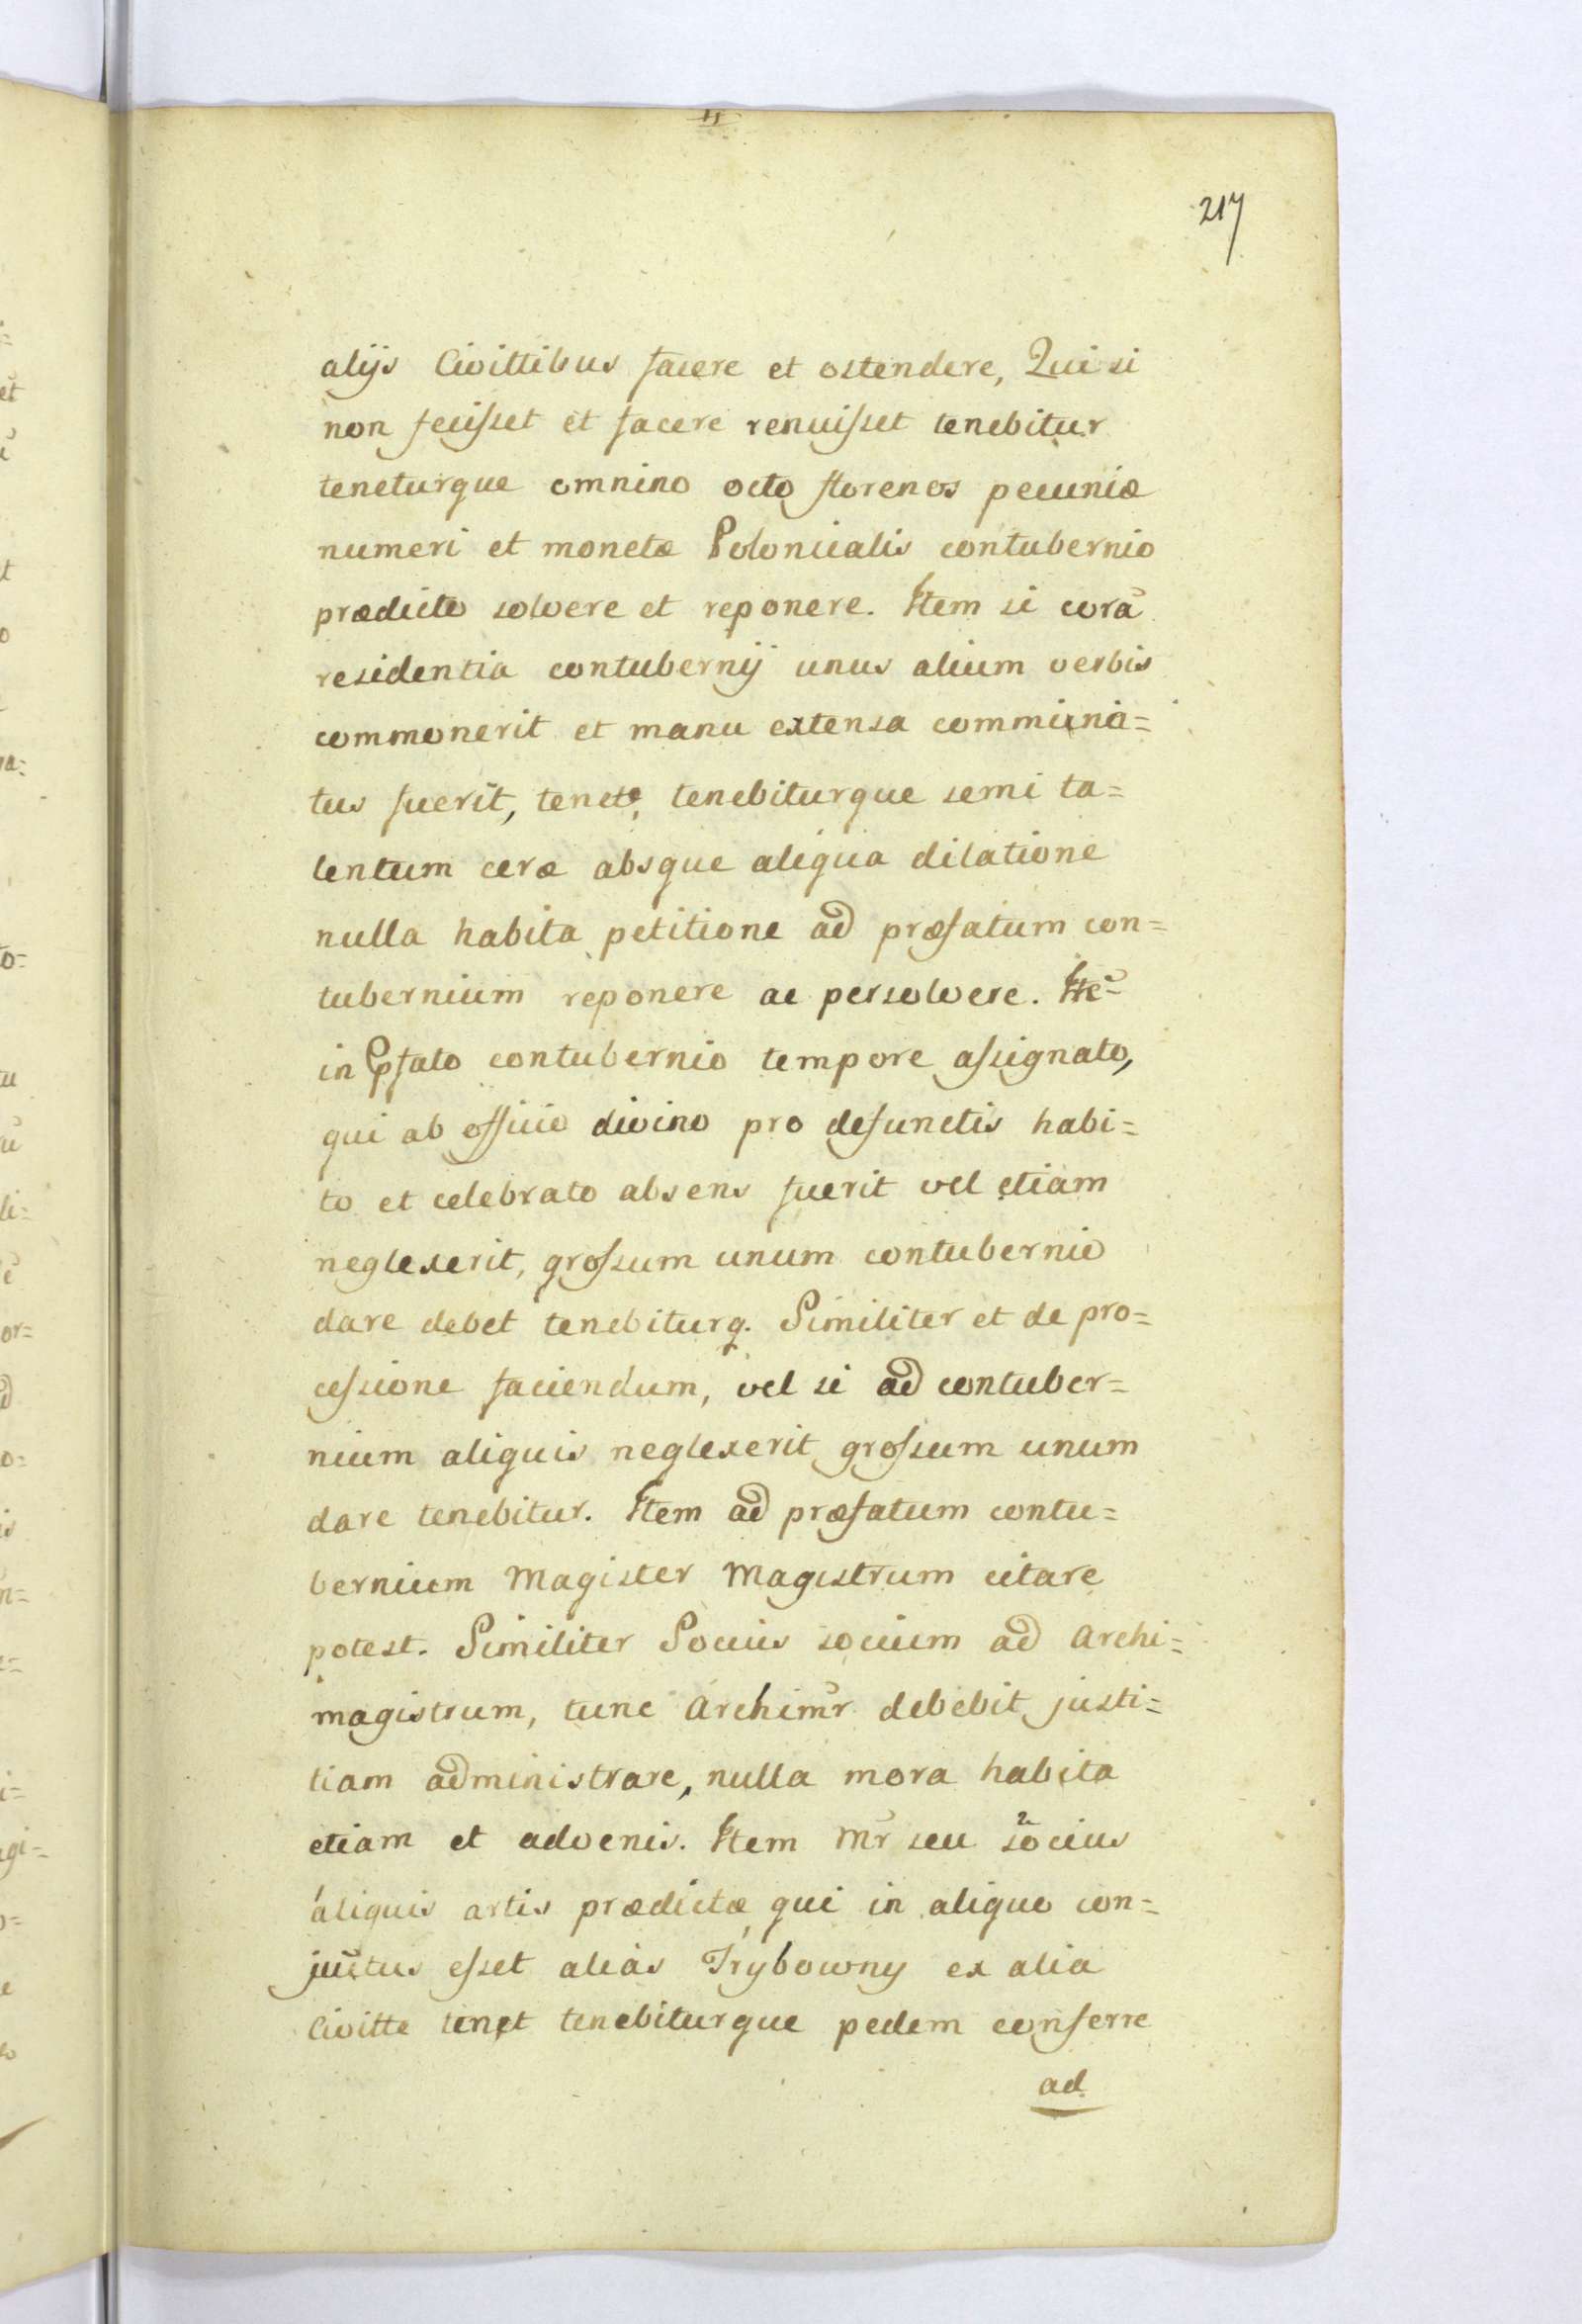 217
alijs Civittibus facere et ostendere, Qui si
non fecisset et facere renuisset tenebitur
teneturque omnino octo florenos pecuniæ
numeri et monetæ Polonicalis contubernio
prædicto solvere et reponere. Item si corã
residentia contubernij unus alium verbis
commonerit et manu extensa commina=
tus fuerit, tenet, tenebiturque semi ta=
lentum ceræ absque aliqua dilatione
nulla habita petitione ad præfatum con=
tubernium reponere ac persolvere. Itẽ
in pfato contubernio tempore assignato,
qui ab officio divino pro defunctis habi=
to et celebrato absens fuerit vel etiam
neglexerit, grossum unum contubernio
dare debet tenebiturq. Similiter et de pro=
cessione faciendum, vel si ad contuber=
nium aliquis neglexerit grossum unum
dare tenebitur. Item ad præfatum contu=
bernium Magister Magistrum citare
potest. Similiter Socius socium ad Archi=
magistrum, tunc Archimr debebit justi=
tiam administrare, nulla mora habita
etiam et advenis. Item Mr seu socius
aliquis artis prædictæ qui in aliquo con=
juctus esset aliàs Trybowny ex alia
Civitte tenet tenebiturque pedem conferre
ad